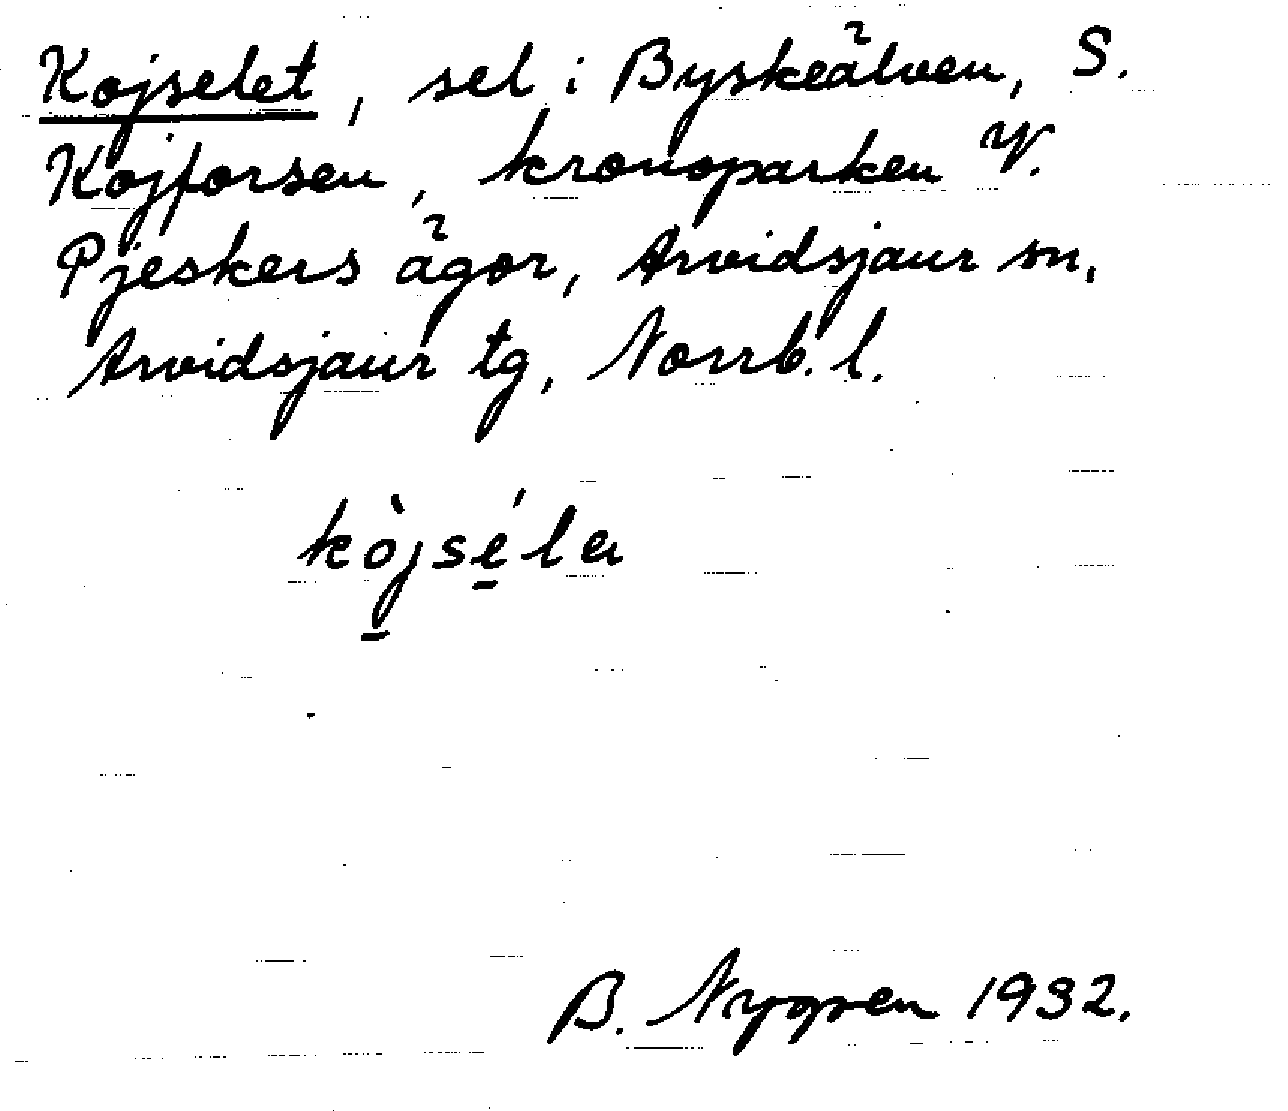 Kojselet, sel i Byskeälven, S.
Kojforsen, kronoparken V.
Pjeskers ägor, Arvidsjaur sn,
Arvidsjaur tg, Norrb. l.
kòjséla
B. Nygren 1932.